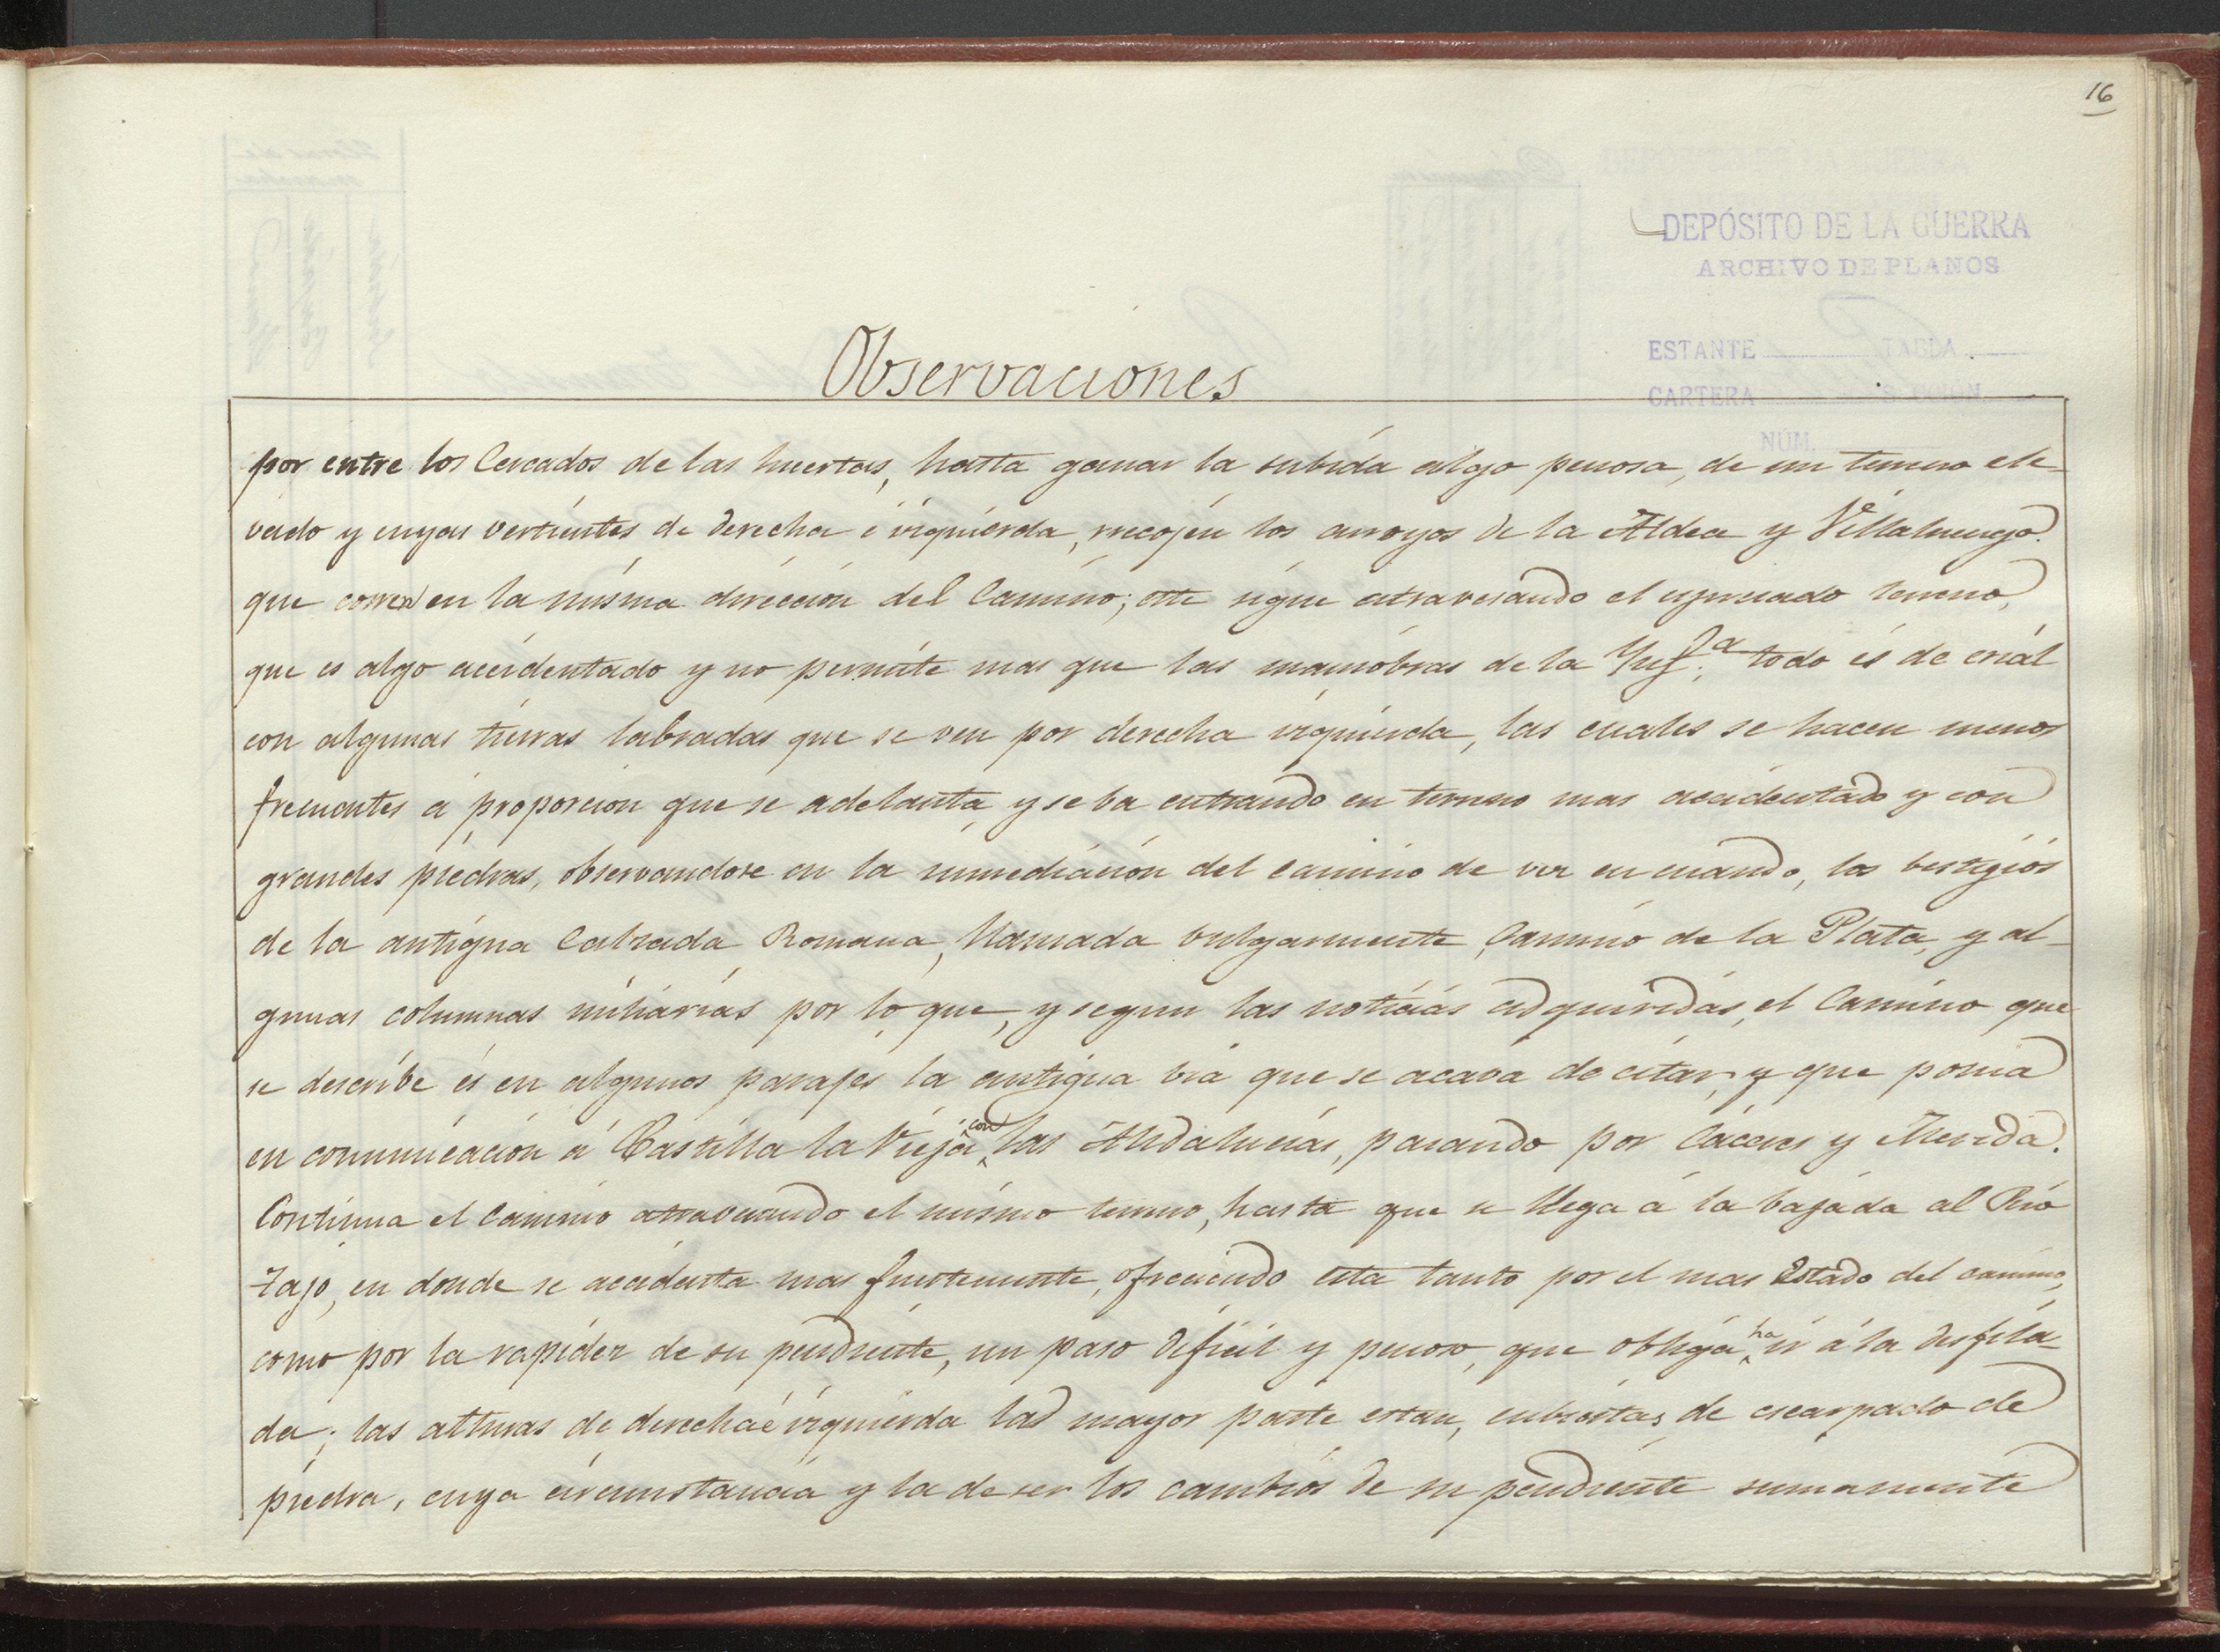 16
DEPÓSITO DE LA GUERRA
ARCHIVO DE PLANOS
ESTANTE TABLA
CARTERA
NÚM.
Observaciones
por entre los Cercados de las huertas, hasta ganar la subida algo penosa, de un terreno ele-
vado y cuyas vertientes de derecha é izquierda, recojen los arroyos de la Aldea y Villaluengo.
que corren en la misma dirección del Camino; este sigue atravesando el espresado terreno,
que es algo accidentado y no permite mas que las maniobras de la Ynf.ª todo es de erial
con algunas tierras labradas que se ven por derecha izquierda, las cuales se hacen menos
frecuentes á proporcion que se adelanta, y se ba entrando en terreno mas accidentado y con
grandes piedras, observandose en la inmediación del camino de vez en cuando, los bestigios
de la antigua Calzada Romana, llamada vulgarmente, Camino de la Plata, y al-
gunas columnas miliarias por lo que, y segun las noticias adquiridas, el Camino que
se describe és en algunos parajes la antigua bia que se acava de citar, y que ponia
en comunicación á Castilla la Vieja con las Andalucias, pasando por Cáceres y Merida.
Continua el Camino atravesando el mismo terreno, hasta que se llega á la bajada al Rio
Tajo, en donde se accidenta mas fuertemente, ofreciendo esta tanto por el mas Estado del camino,
como por la rapidez de su pendiente, un paso dificil y penoso, que obliga ha ir á la desfila-
da; las alturas de derecha é izquierda las mayor parte estan, cubiertas de escarpado de
piedra, cuya circunstancia y la de ser los cambios de su pendiente sumamente